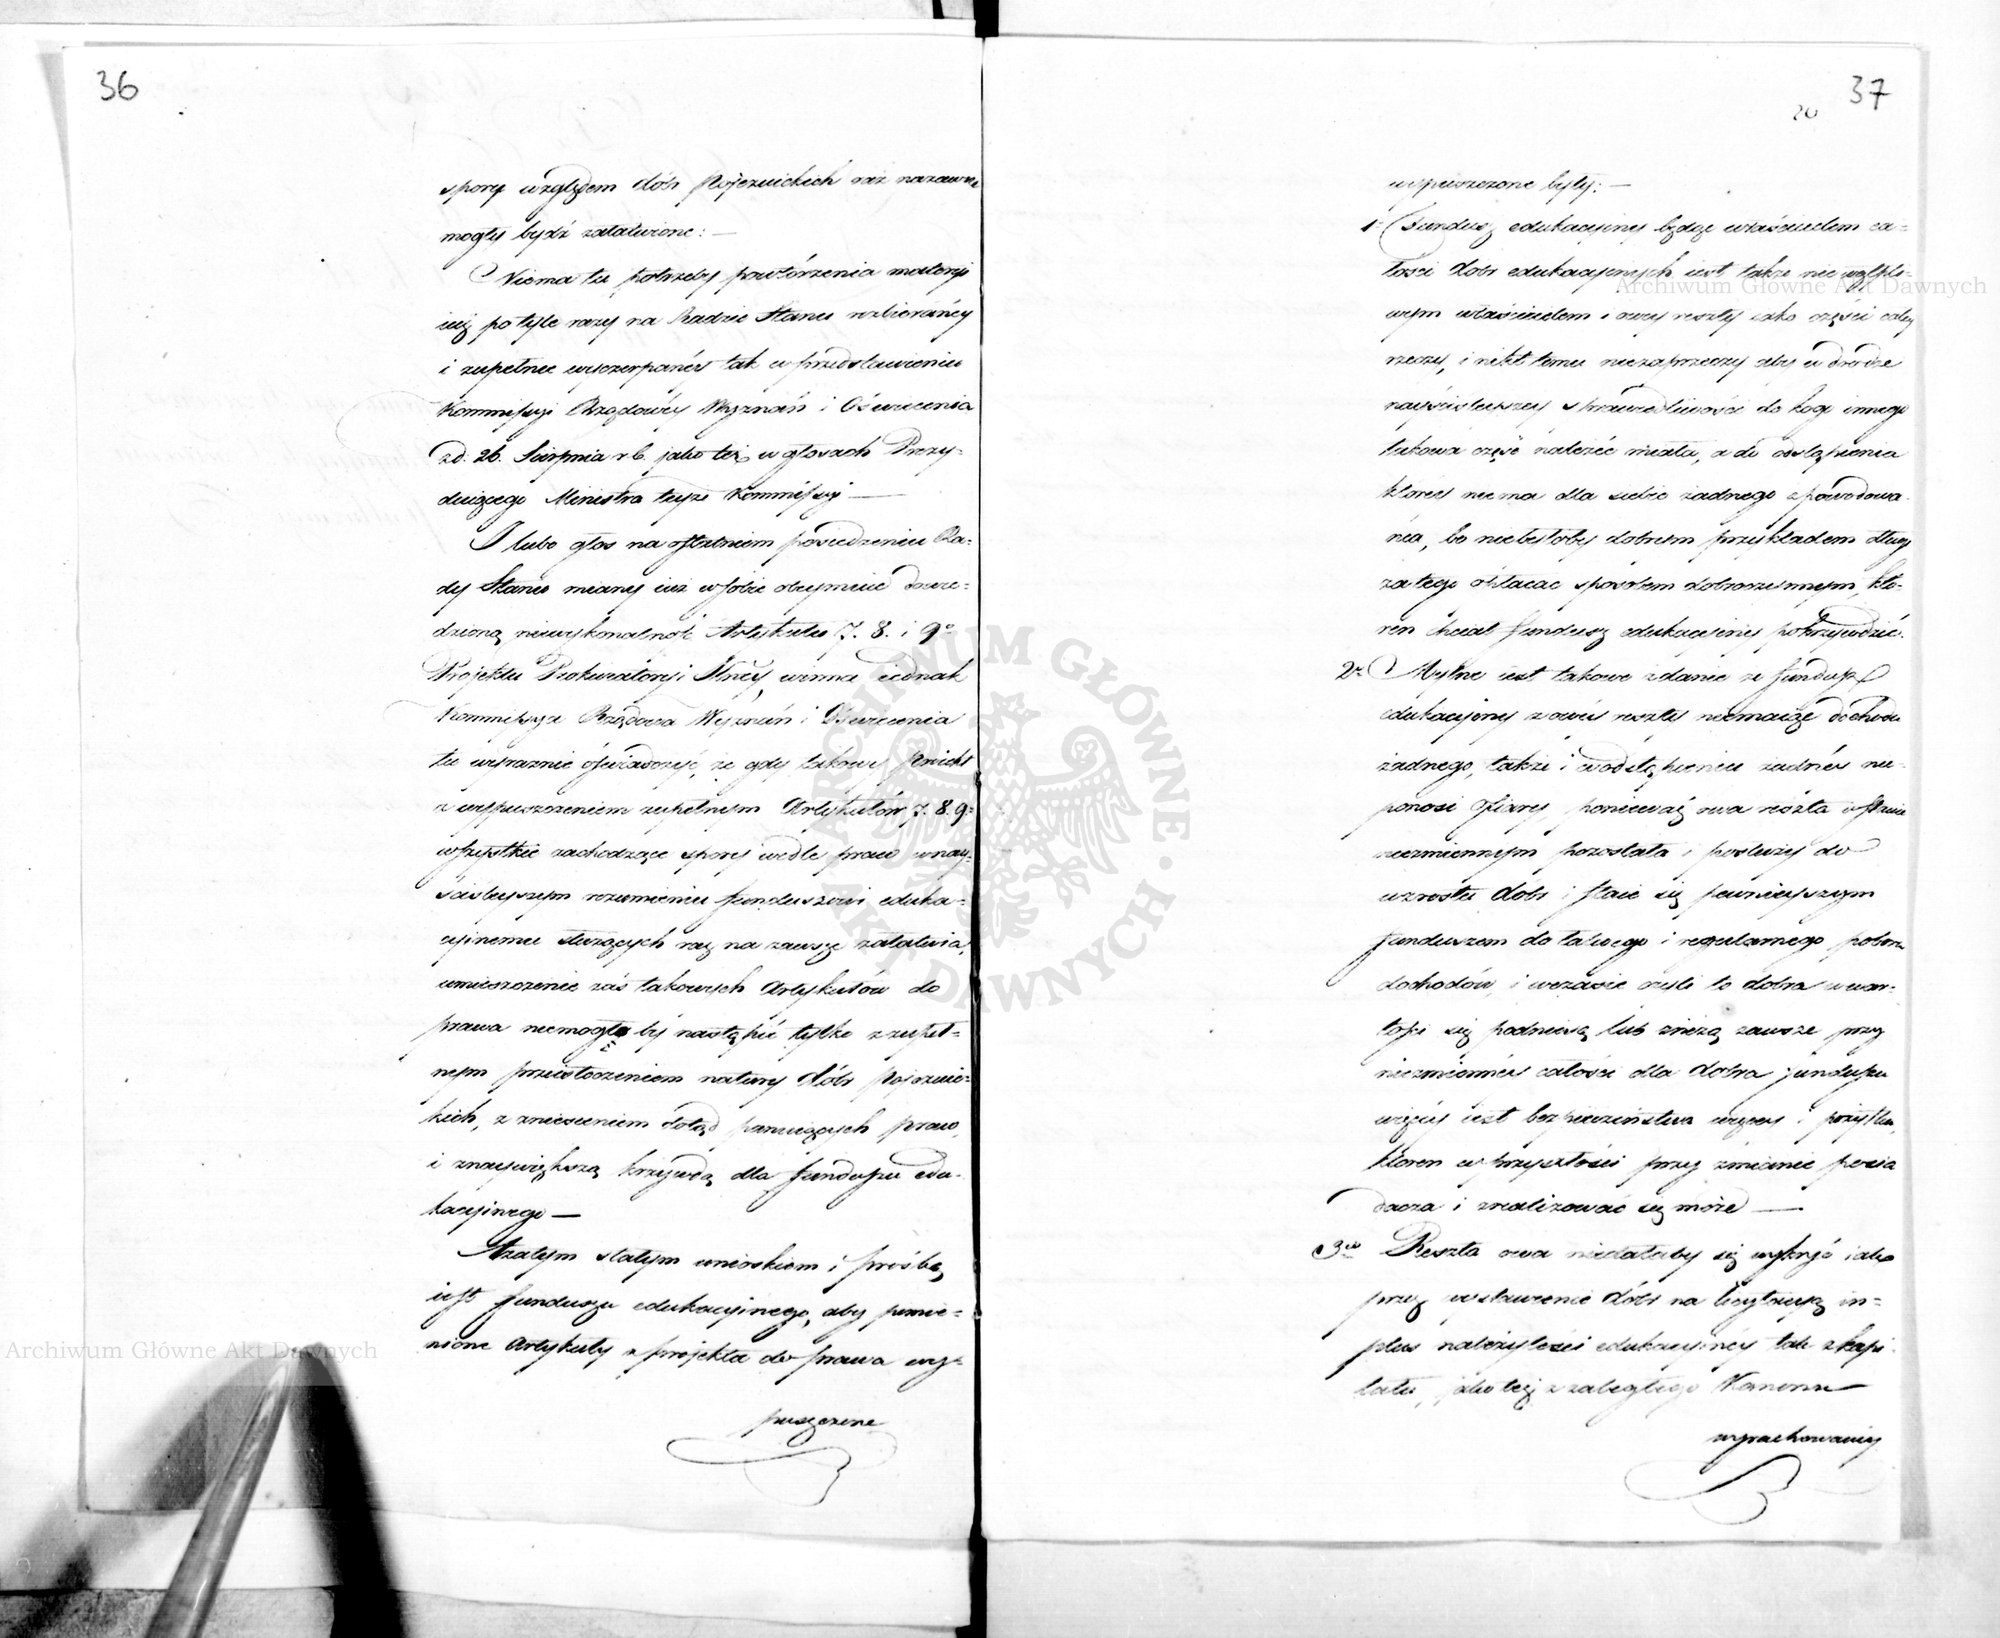 36
spory względem dóbr Pojezuickich raz nazawsze
mogły bydź załatwione: —
Niema tu potrzeby powtórzenia materyi
iuż po tyle razy na Radzie Stanu rozbieranéy
i zupełnie wyczerpanéy tak w przedstawieniu
Kommissyi Rządowéy Wyznań i Oświecenia
zd. 26. Sierpnia r b. jako też w głosach Prezy-
duiącego Ministra teyże Kommissyi —
I lubo głos na ostatniem posiedzeniu Ra-
dy Stanu miany iuż w sobie obeymuie dowie-
dzioną niewykonalność Artykułu 7. 8. i 9º
Projektu Prokuratoryi Słnéy, winna iednak
Kommissya Rządowa Wyznań i Oświecenia
tu wyraznie oświadczyć, że gdy takowy Proiekt
z wypuszczeniem zupełnym Artykułów 7. 8. 9º
wszystkie zachodzące spory wedle praw w nay-
ściśleyszym rozumieniu funduszowi eduka-
cyinemu służących raz na zawsze załatwia,
umieszczenie zaś takowych Artykułów do
prawa niemogło by nastąpić tylko z zupeł-
nym przeistoczeniem natury dóbr Pojezuic-
kich, z zniesieniem dotąd panuiących praw,
i znaywiększą krzywdą dla funduszu edu-
kacyinego —
Azatym stałym wnioskiem i prośbą
iest funduszu edukacyinego, aby pomie-
nione Artykuły z projektu do prawa wy-
puszczone
37
20
wypuszczone były: —
1º Fundusz edukacyiny będąc właścicielem ca-
łości dóbr edukacyinych iest także nie wątpli-
wym właścicielem i owey reszty iako części całey
rzeczy, i nikt temu niezaprzeczy aby w drodze
nayściśleyszey sprawiedliwości do kogo innego
takowa część należeć miała, a do odstąpienia
ktorey niema dla siebie żadnego spowodowa-
nia, bo niebyłoby dobrym przykładem długi
zatego opłacać sposobem dobroczynnym, któ-
ren chciał fundusz edukacyiny pokrzywdzić.
2º Mylne iest takowe zdanie że fundusz
edukacyiny z owéy reszty niemaiąc dochodu
żadnego, także i w odstąpieniu żadnéy nie-
ponosi ofiary, ponieważ owa reszta w stanie
niezmiennym pozostała i posłuży do
wzrostu dóbr i staie się pewnieyszym
funduszem do stałego i regularnego poboru
dochodów, i w czasie ieśli to dobra w war-
tości się podniosą lub zniżą zawsze przy
niezmiennéy całości dla dobra funduszu
więcéy iest bezpieczeństwa więcey i pożytku,
któren w przyszłości przy zmianie posia
dacza i zrealizować się może —
3cio Reszta owa niedałaby się wykryć iak
przez wystawienie dóbr na licytacyą in-
plus należytości edukacyinéy tak z kapi-
tału, jako też z zaległego Kanonu
wyrachowaney